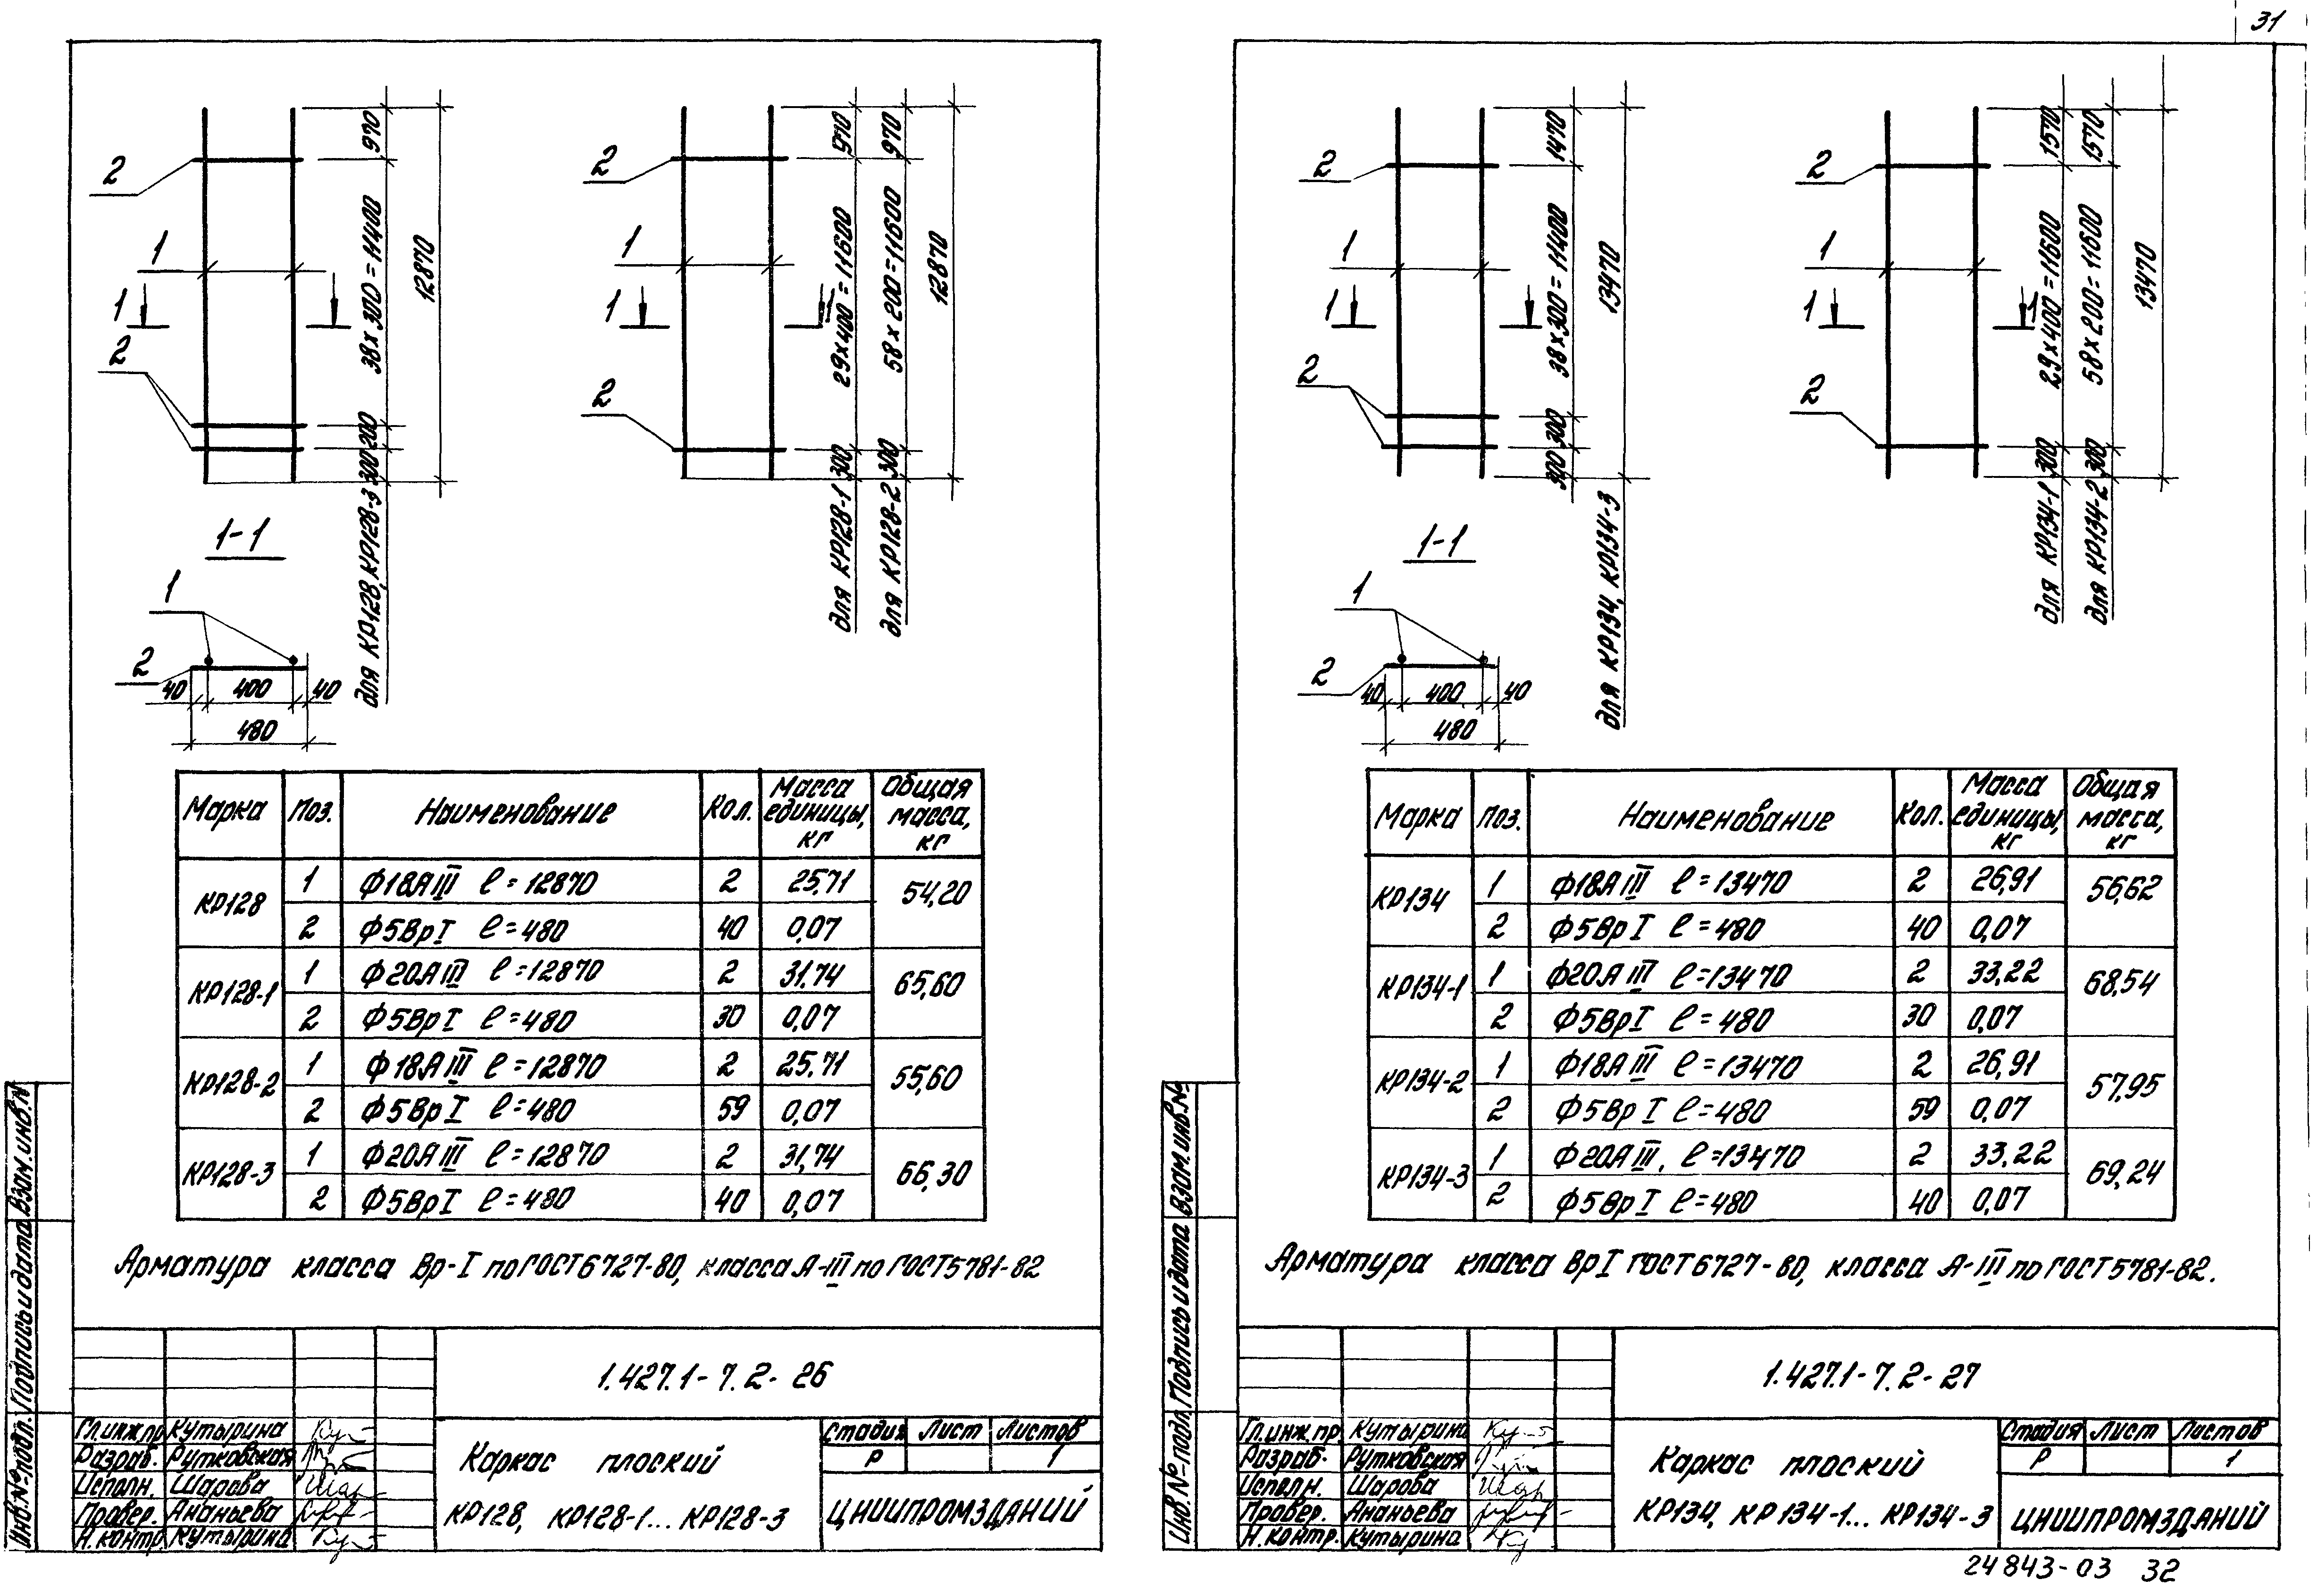 31
970
38×300=11400
12870
200
300
для КР128, КР128-3
2
1
1
2
1-1
1
2
40
400
40
480
2
1
1
1
2
970
29×400=11600
300
для КР128-1
970
58×200=11600
300
для КР128-2
12870
Марка Поз. Наименование Кол. Масса единицы, кг Общая масса, кг
КР128 1 Ф18АIII ℓ=12870 2 25,71 54,20
2 Ф5ВрI ℓ=480 40 0,07
КР128-1 1 Ф20АIII ℓ=12870 2 31,74 65,60
2 Ф5ВрI ℓ=480 30 0,07
КР128-2 1 Ф18АIII ℓ=12870 2 25,71 55,60
2 Ф5ВрI ℓ=480 59 0,07
КР128-3 1 Ф20АIII ℓ=12870 2 31,74 66,30
2 Ф5ВрI ℓ=480 40 0,07
Арматура класса Вр-I по ГОСТ 6727-80, класса А-III по ГОСТ 5781-82
1.427.1-7.2-26
Гл.инж.пр Кутырина
Разраб. Рутковская
Исполн. Шарова
Провер. Ананьева
Н.контр. Кутырина
Каркас плоский
КР128, КР128-1... КР128-3
Стадия Лист Листов
Р 1
ЦНИИПРОМЗДАНИЙ
Инв.№подл. Подпись и дата Взам.инв.№
2
1
1
2
1470
38×300=11400
300
300
13470
для КР134, КР134-3
1-1
1
2
40
400
40
480
2
1
1
1
2
1570
29×400=11600
300
для КР134-1
1570
58×200=11600
300
для КР134-2
13470
Марка Поз. Наименование Кол. Масса единицы, кг Общая масса, кг
КР134 1 Ф18АIII ℓ=13470 2 26,91 56,62
2 Ф5ВрI ℓ=480 40 0,07
КР134-1 1 Ф20АIII ℓ=13470 2 33,22 68,54
2 Ф5ВрI ℓ=480 30 0,07
КР134-2 1 Ф18АIII ℓ=13470 2 26,91 57,95
2 Ф5ВрI ℓ=480 59 0,07
КР134-3 1 Ф20АIII, ℓ=13470 2 33,22 69,24
2 Ф5ВрI ℓ=480 40 0,07
Арматура класса ВрI ГОСТ 6727-80, класса А-III по ГОСТ 5781-82.
1.427.1-7.2-27
Гл.инж.пр. Кутырина
Разраб. Рутковская
Исполн. Шарова
Провер. Ананьева
Н.контр. Кутырина
Каркас плоский
КР134, КР134-1... КР134-3
Стадия Лист Листов
Р 1
ЦНИИПРОМЗДАНИЙ
Инв.№подл. Подпись и дата Взам.инв.№
24843-03 32